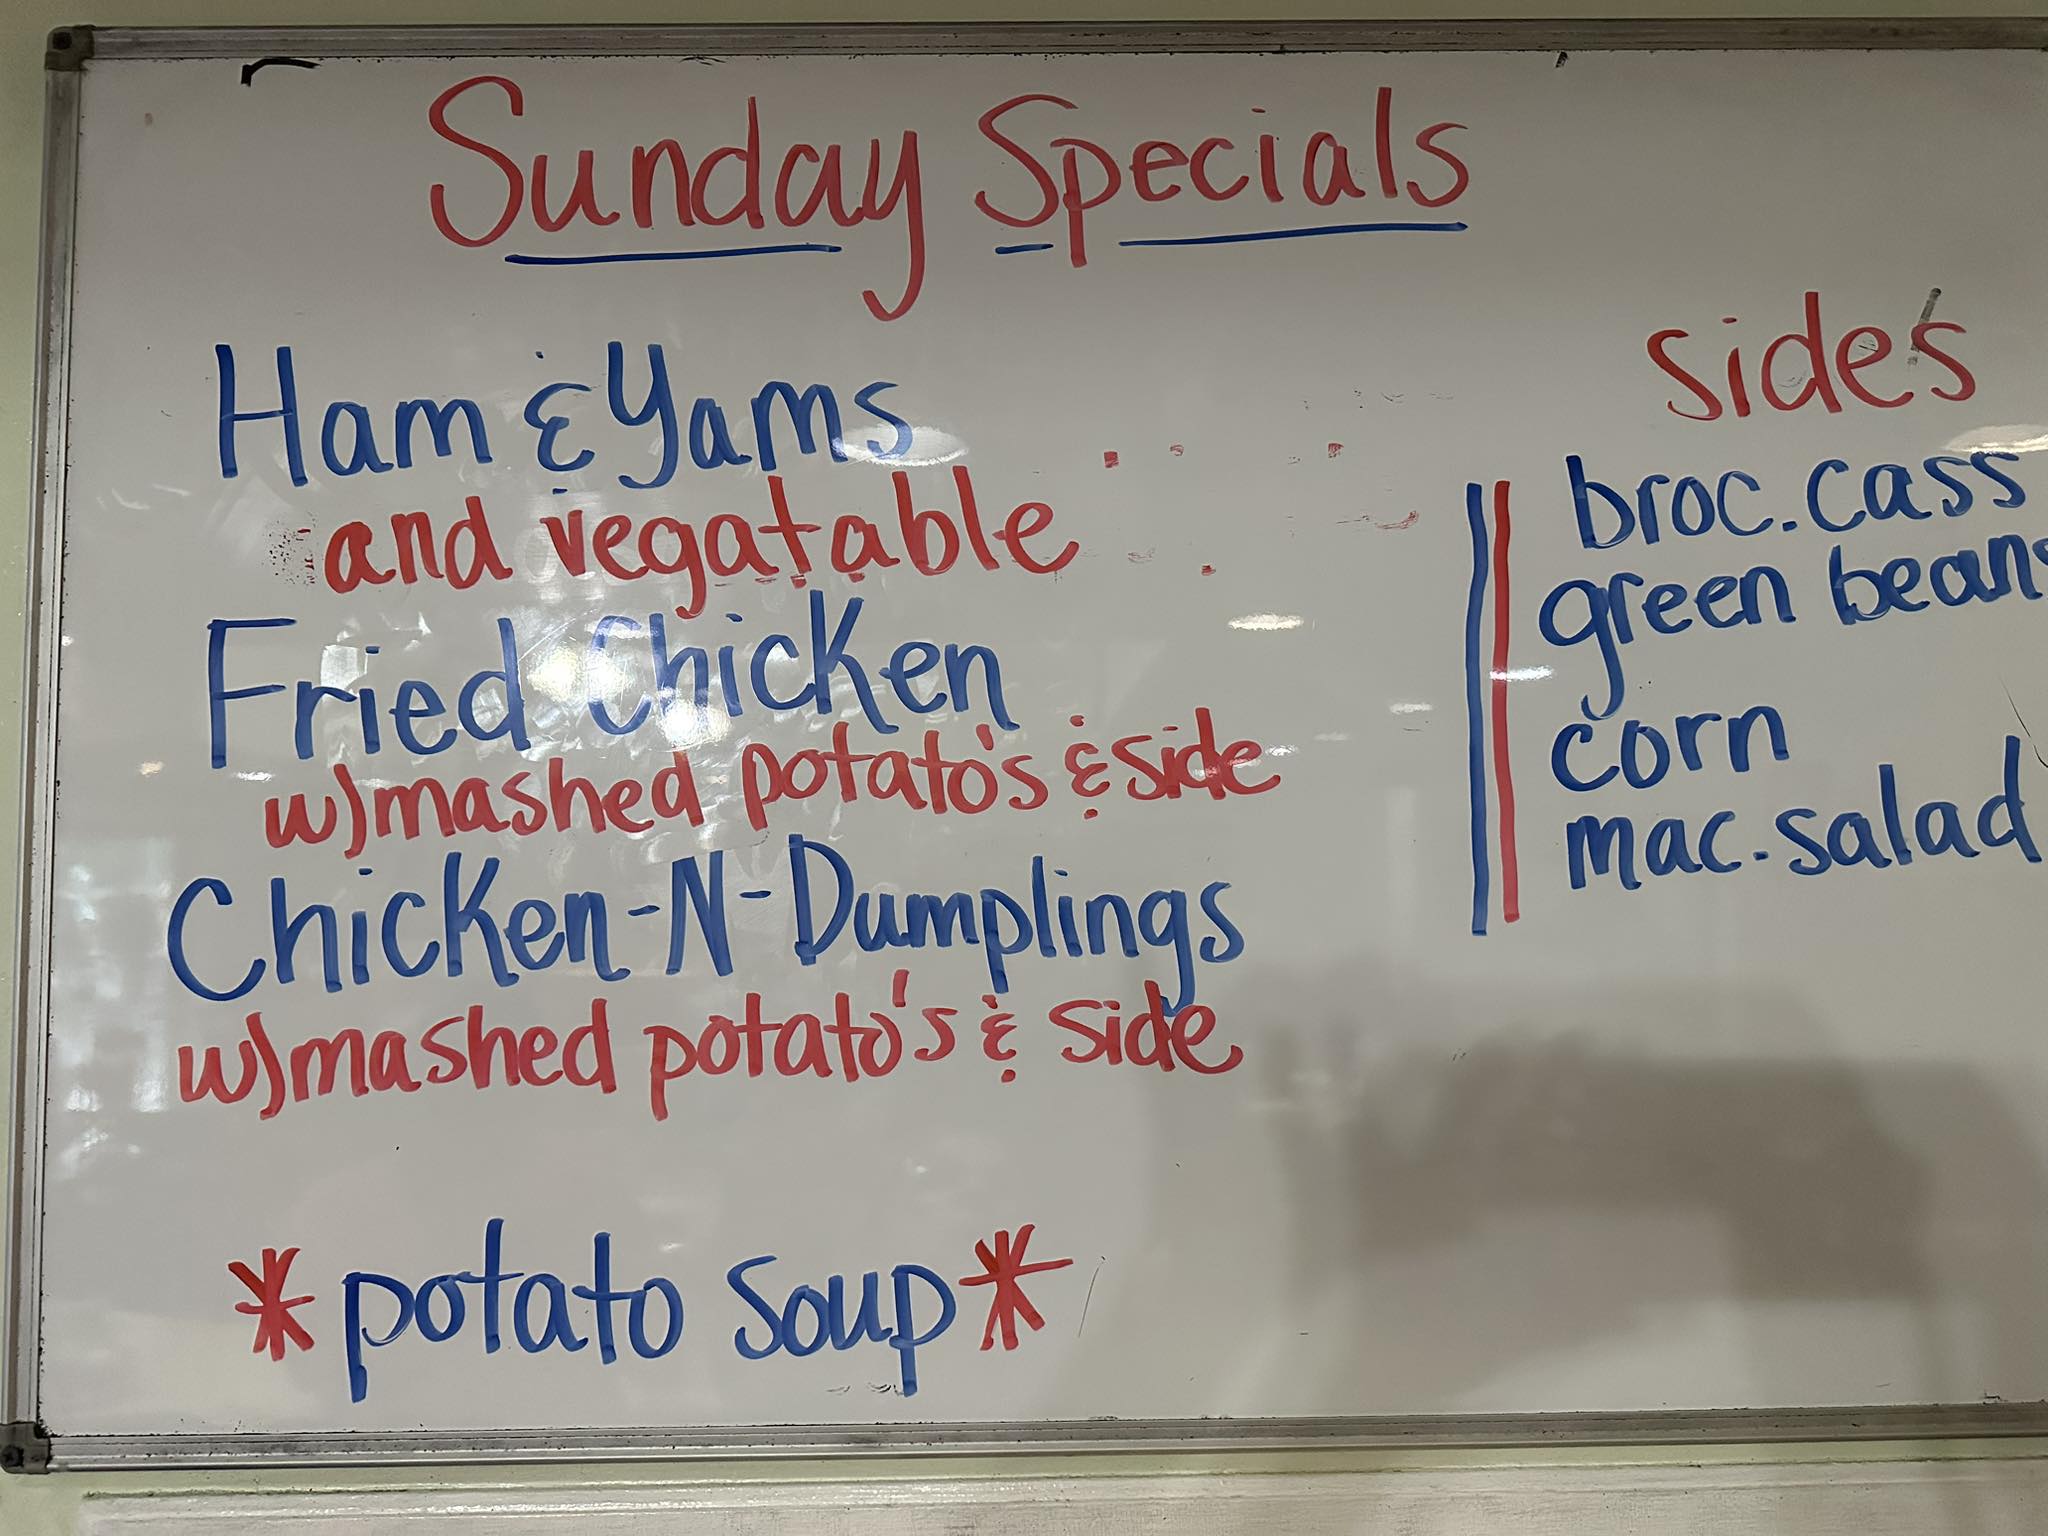 Sunday Specials
Ham & Yams
and vegatable
Fried Chicken
w/mashed potato's & side
Chicken-N-Dumplings
w/mashed potato's & side
*potato soup*
sides
broc. cass
green beans
corn
mac. salad